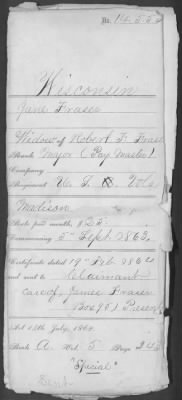 No. 14.552
Wisconsin
Jane Fraser
Widow of Robert F. Fraser
Rank Major (Pay Master)
Company
Regiment U. S. Vols
Madison
Rate per month, $25.
Commencing 5th Sept. 1863.
Certificate dated 19th Feb 1864
and sent to Claimant
care of James Fraser
Box 951 Present
Act 14th July, 1862.
Book A. Vol. 5 Page 243
"Special"